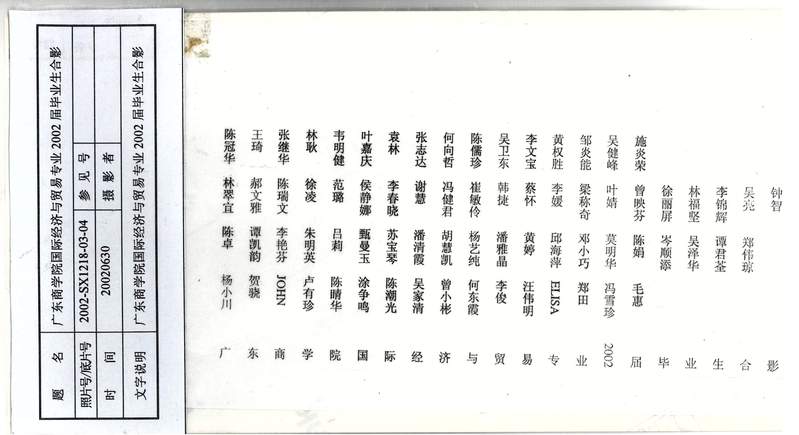 题 名 广东商学院国际经济与贸易专业2002届毕业生合影
照片号/底片号 2002-SX1218-03-04 参 见 号
时 间 20020630 摄 影 者
文字说明 广东商学院国际经济与贸易专业2002届毕业生合影
陈冠华 王琦 张继华 林耿 韦明健 叶嘉庆 袁林 张志达 何向哲 陈儒珍 吴卫东 李文宝 黄权胜 邹炎能 吴健峰 施炎荣
林翠宜 郝文雅 陈瑞文 徐凌 范璐 侯静娜 李春晓 谢慧 冯健君 崔敏伶 韩捷 蔡怀 李媛 梁称奇 叶婧 曾映芬 徐丽屏 林福坚 李锦辉 吴亮 钟智
陈卓 谭凯韵 李艳芬 朱明英 吕莉 甄曼玉 苏宝琴 潘清霞 胡慧凯 杨艺纯 潘雅晶 黄婷 邱海萍 邓小巧 莫明华 陈娟 岑顺添 吴泽华 谭君荃 郑伟琼
杨小川 贺骁 JOHN 卢有珍 陈晴华 涂争鸣 陈潮光 吴家清 曾小彬 何东霞 李俊 汪伟明 ELISA 郑田 冯雪珍 毛惠
广东商学院国际经济与贸易专业2002届毕业生合影